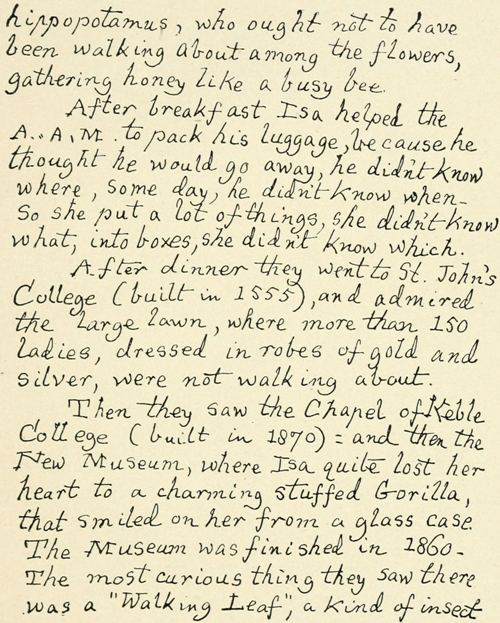 hippopotamus, who ought not to have
been walking about among the flowers,
gathering honey like a busy bee.
After breakfast Isa helped the
A.A.M. to pack his luggage, because he
thought he would go away, he didn't know
where, some day, he didn't know when-
So she put a lot of things, she didn't know
what, into boxes, she didn't know which.
After dinner they went to St. John's
College (built in 1555), and admired
the large lawn, where more than 150
ladies, dressed in robes of gold and
silver, were not walking about.
Then they saw the Chapel of Keble
College (built in 1870): and then the
New Museum, where Isa quite lost her
heart to a charming stuffed Gorilla,
that smiled on her from a glass case.
The Museum was finished in 1860-
The most curious thing they saw there
was a "Walking Leaf", a kind of insect